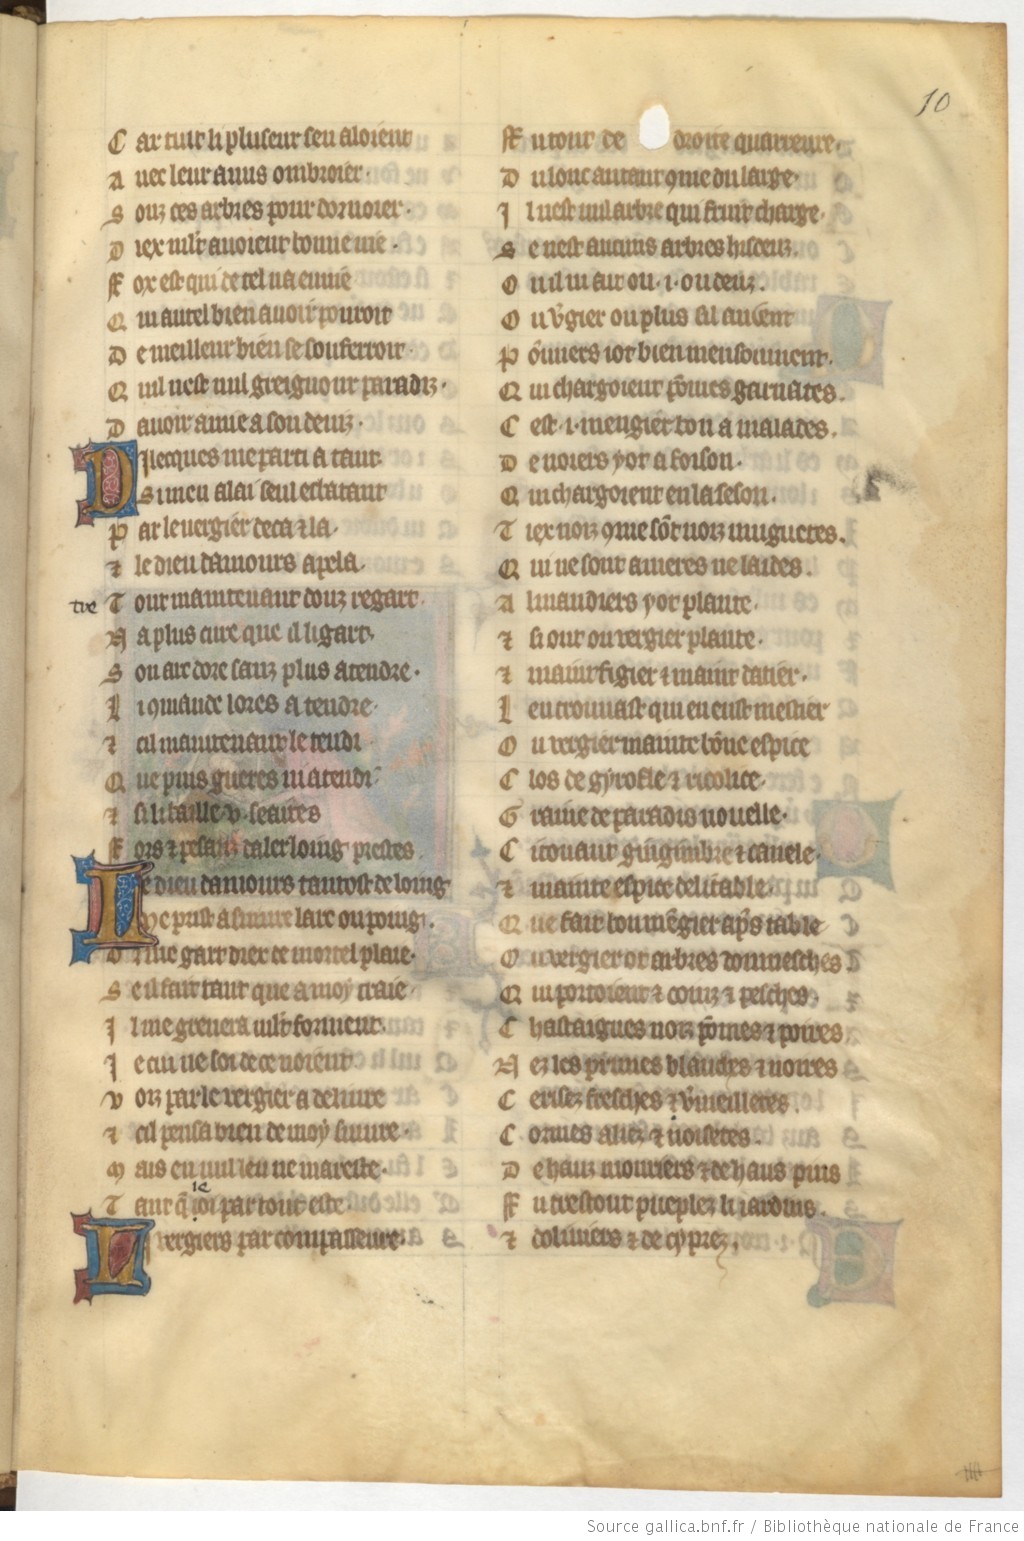 10
Car tuit li pluseur sen aloient
Avec leur amis ombroier.
Souz ces arbres pour dornoier.
Diex mlt avoient bonne vie.
Fox est qui de tel na envie
Qui autel bien avoir pouroit
De meilleur bien se soufferroit.
Quil nest nul greignour paradiz.
Davoir amie a son deviz.
Dilecques me parti a tant
Si men alai seul esbatant
Par le vergier deca ⁊ la.
⁊ le dieu damours apela.
tre Tout maintenant douz regart.
Na plus cure que il li gart.
Son arc dore sanz plus atendre.
Li 9mande lores a tendre.
⁊ cil maintenant le tendi
Que puis gueres ni atendi.
⁊ si li baille .v. seaites
Fors ⁊ pesans daler loing prestes.
Le dieu damours tantost de loing
Me prist a suivre larc ou poing.
Or me gart diex de mortel plaie.
Se il fait tant que a moy traie.
Il me grevera mlt forment.
Je cui ne soi de ce noient
Voiz par le vergier a delivre
⁊ cil pensa bien de moy suivre.
Mais en nul lieu ne mareste.
le
Tant q̄ ioi par tout este.
Li vergiers par compasseure
Fu tout de droite quarreure.
Du lonc autant 9me du large.
Il nest nul arbre qui fruit charge.
Se nest aucuns arbres hisdeuz.
Ou il ni ait ou .i. ou deuz.
Ou v̄gier ou plus sil avient
Pōmiers iot bien men souvient.
Qui chargoient pōmes garnates.
Cest .i. mengier bon a malades.
De noiers y ot a foison.
Qui chargoient en la seson.
Tiex noiz 9me sōt noiz muguetes.
Qui ne sont ameres ne laides.
Almandiers y ot plante.
⁊ si ont ou vergier plante.
⁊ maint figier ⁊ maint datier.
Len trouvast qui en eust mestier
Ou vergier mainte bōne espice
Clos de gyrofle ⁊ ricolice.
Graine de paradis novelle.
Citouaut gingimbre ⁊ canele.
⁊ mainte espice delitable.
Que fait bon mēgier ap̄s table
Ou vergier ot arbres donmesches
Qui portoient ⁊ coinz ⁊ pesches.
Chastaignes noiz pōmes ⁊ poires
Nezles prunes blanches ⁊ noires
Cerises fresches ⁊ v̄meilletes.
Cormes aliez ⁊ noisetes.
De hauz moriers ⁊ de haus pins
Fu trestout pueplez li jardins.
⁊ doliviers ⁊ de cyprez.
Source gallica.bnf.fr / Bibliothèque nationale de France